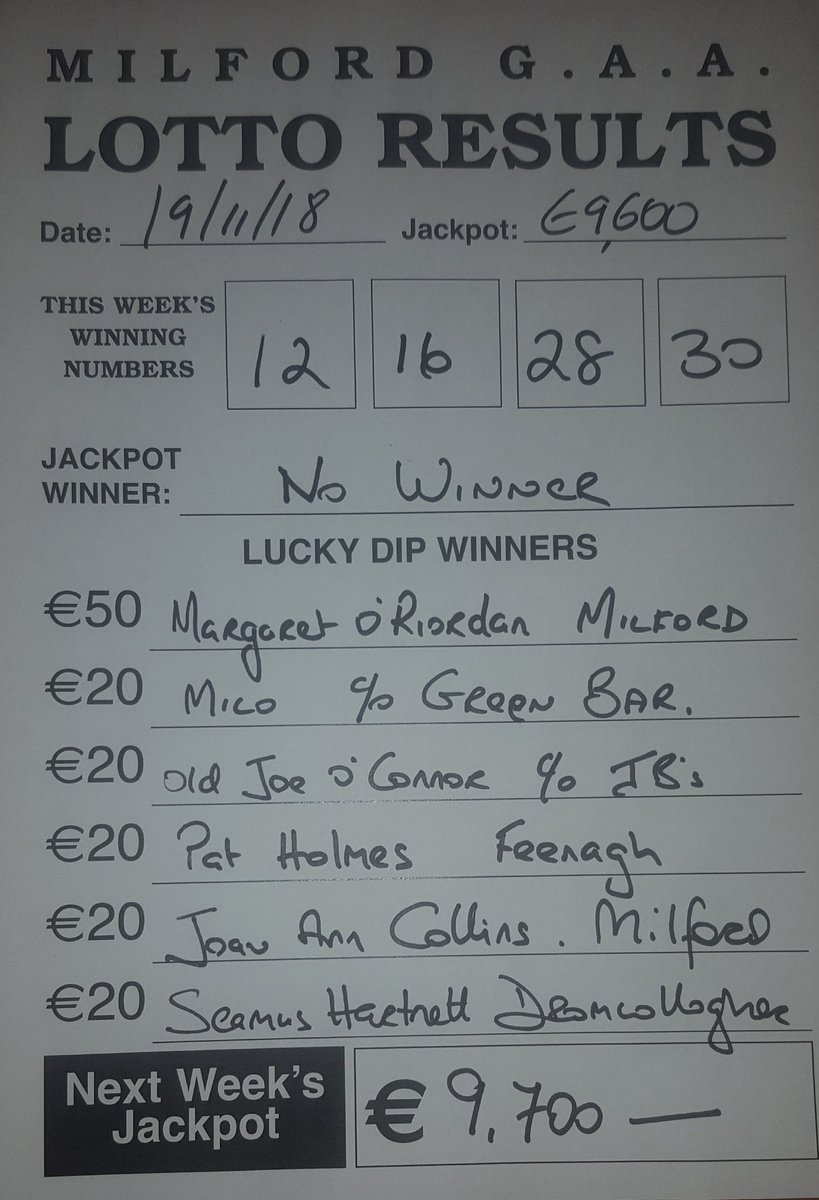 MILFORD G.A.A.
LOTTO RESULTS
Date: 19/11/18 Jackpot: €9,600
THIS WEEK'S
WINNING
NUMBERS
12 16 28 30
JACKPOT
WINNER: No WINNER
LUCKY DIP WINNERS
€50 Margaret O'Riordan MILFORD
€20 Mico c/o GREEN BAR.
€20 Old Joe O'Connor c/o JB's
€20 Pat Holmes Feenagh
€20 Joan Ann Collins. Milford
€20 Seamus Hartnett Dromcollogher
Next Week's
Jackpot
€ 9,700 —